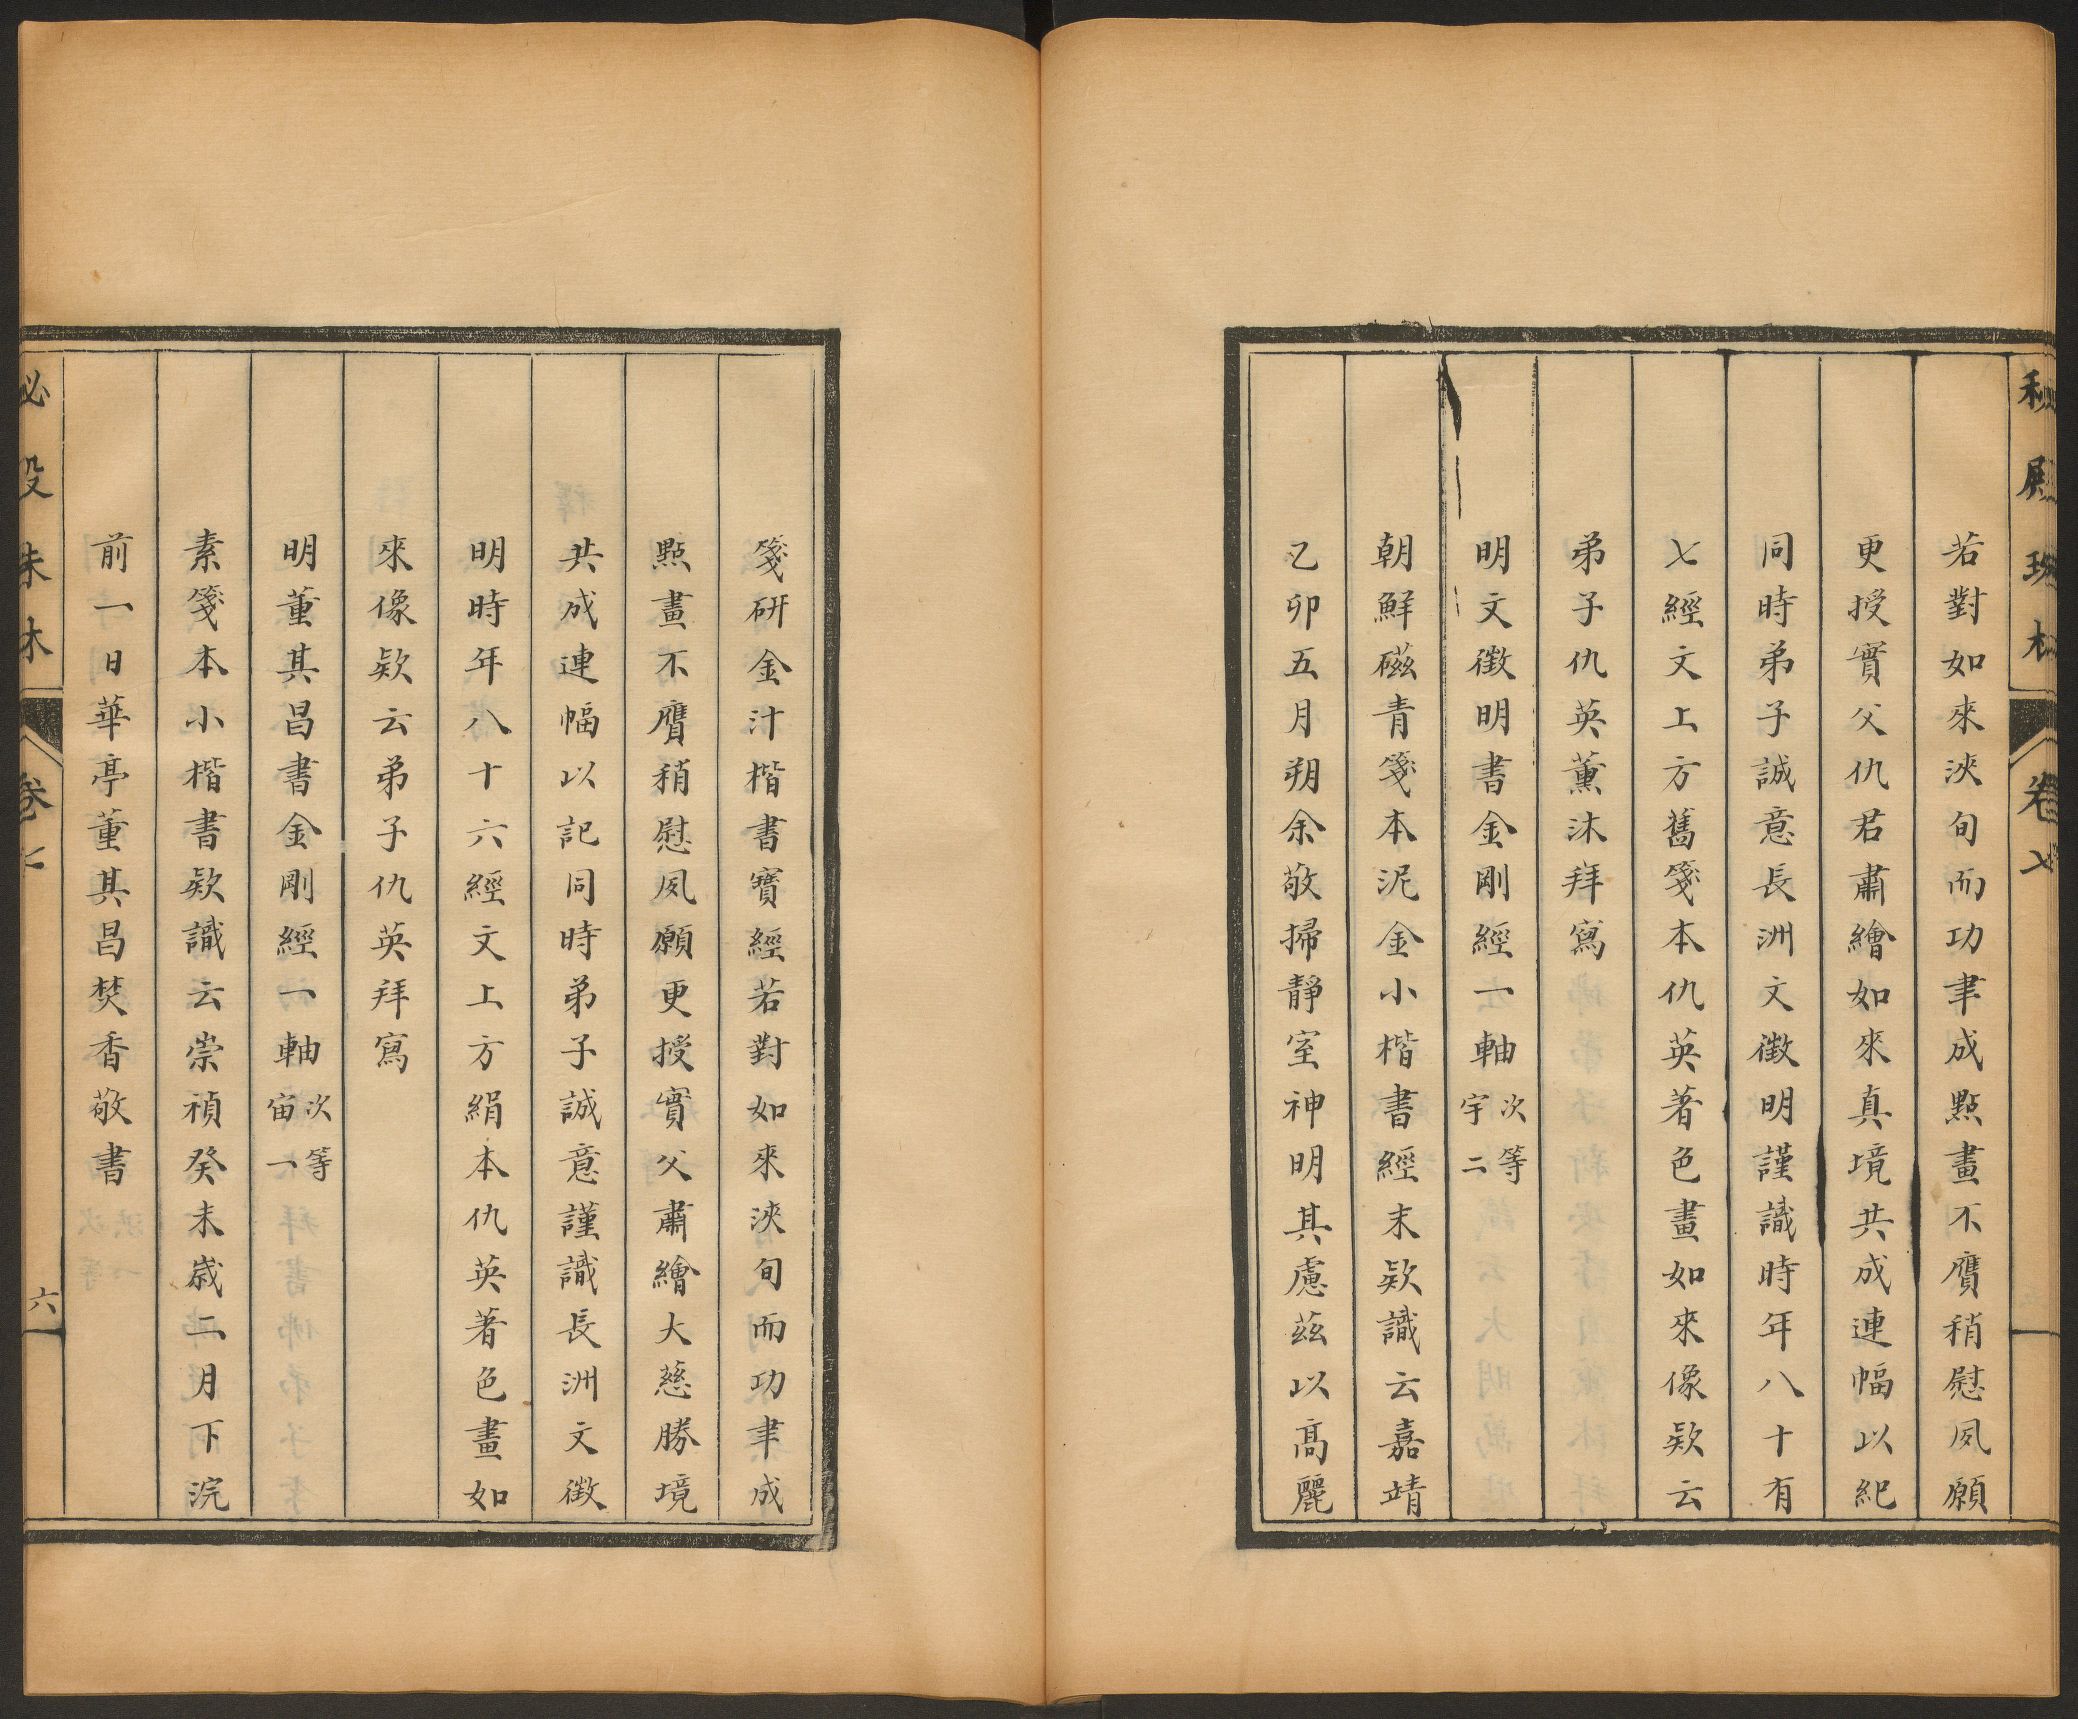 秘殿珠林
卷七
若對如來浹旬而功聿成點畫不贗稍慰夙願
更授實父仇君肅繪如來真境共成連幅以紀
同時弟子誠意長洲文徵明謹識時年八十有
七經文上方舊箋本仇英著色畫如來像欵云
弟子仇英薰沐拜寫
明文徵明書金剛經一軸次等宇二
朝鮮磁青箋本泥金小楷書經末欵識云嘉靖
乙卯五月朔余敬掃靜室神明其慮茲以高麗
箋研金汁楷書寶經若對如來浹旬而功聿成
點畫不贗稍慰夙願更授實父肅繪大慈勝境
共成連幅以記同時弟子誠意謹識長洲文徵
明時年八十六經文上方絹本仇英著色畫如
來像欵云弟子仇英拜寫
明董其昌書金剛經一軸次等宙一
素箋本小楷書欵識云崇禎癸未歲二月下浣
前一日華亭董其昌焚香敬書
秘殿珠林
卷七
六